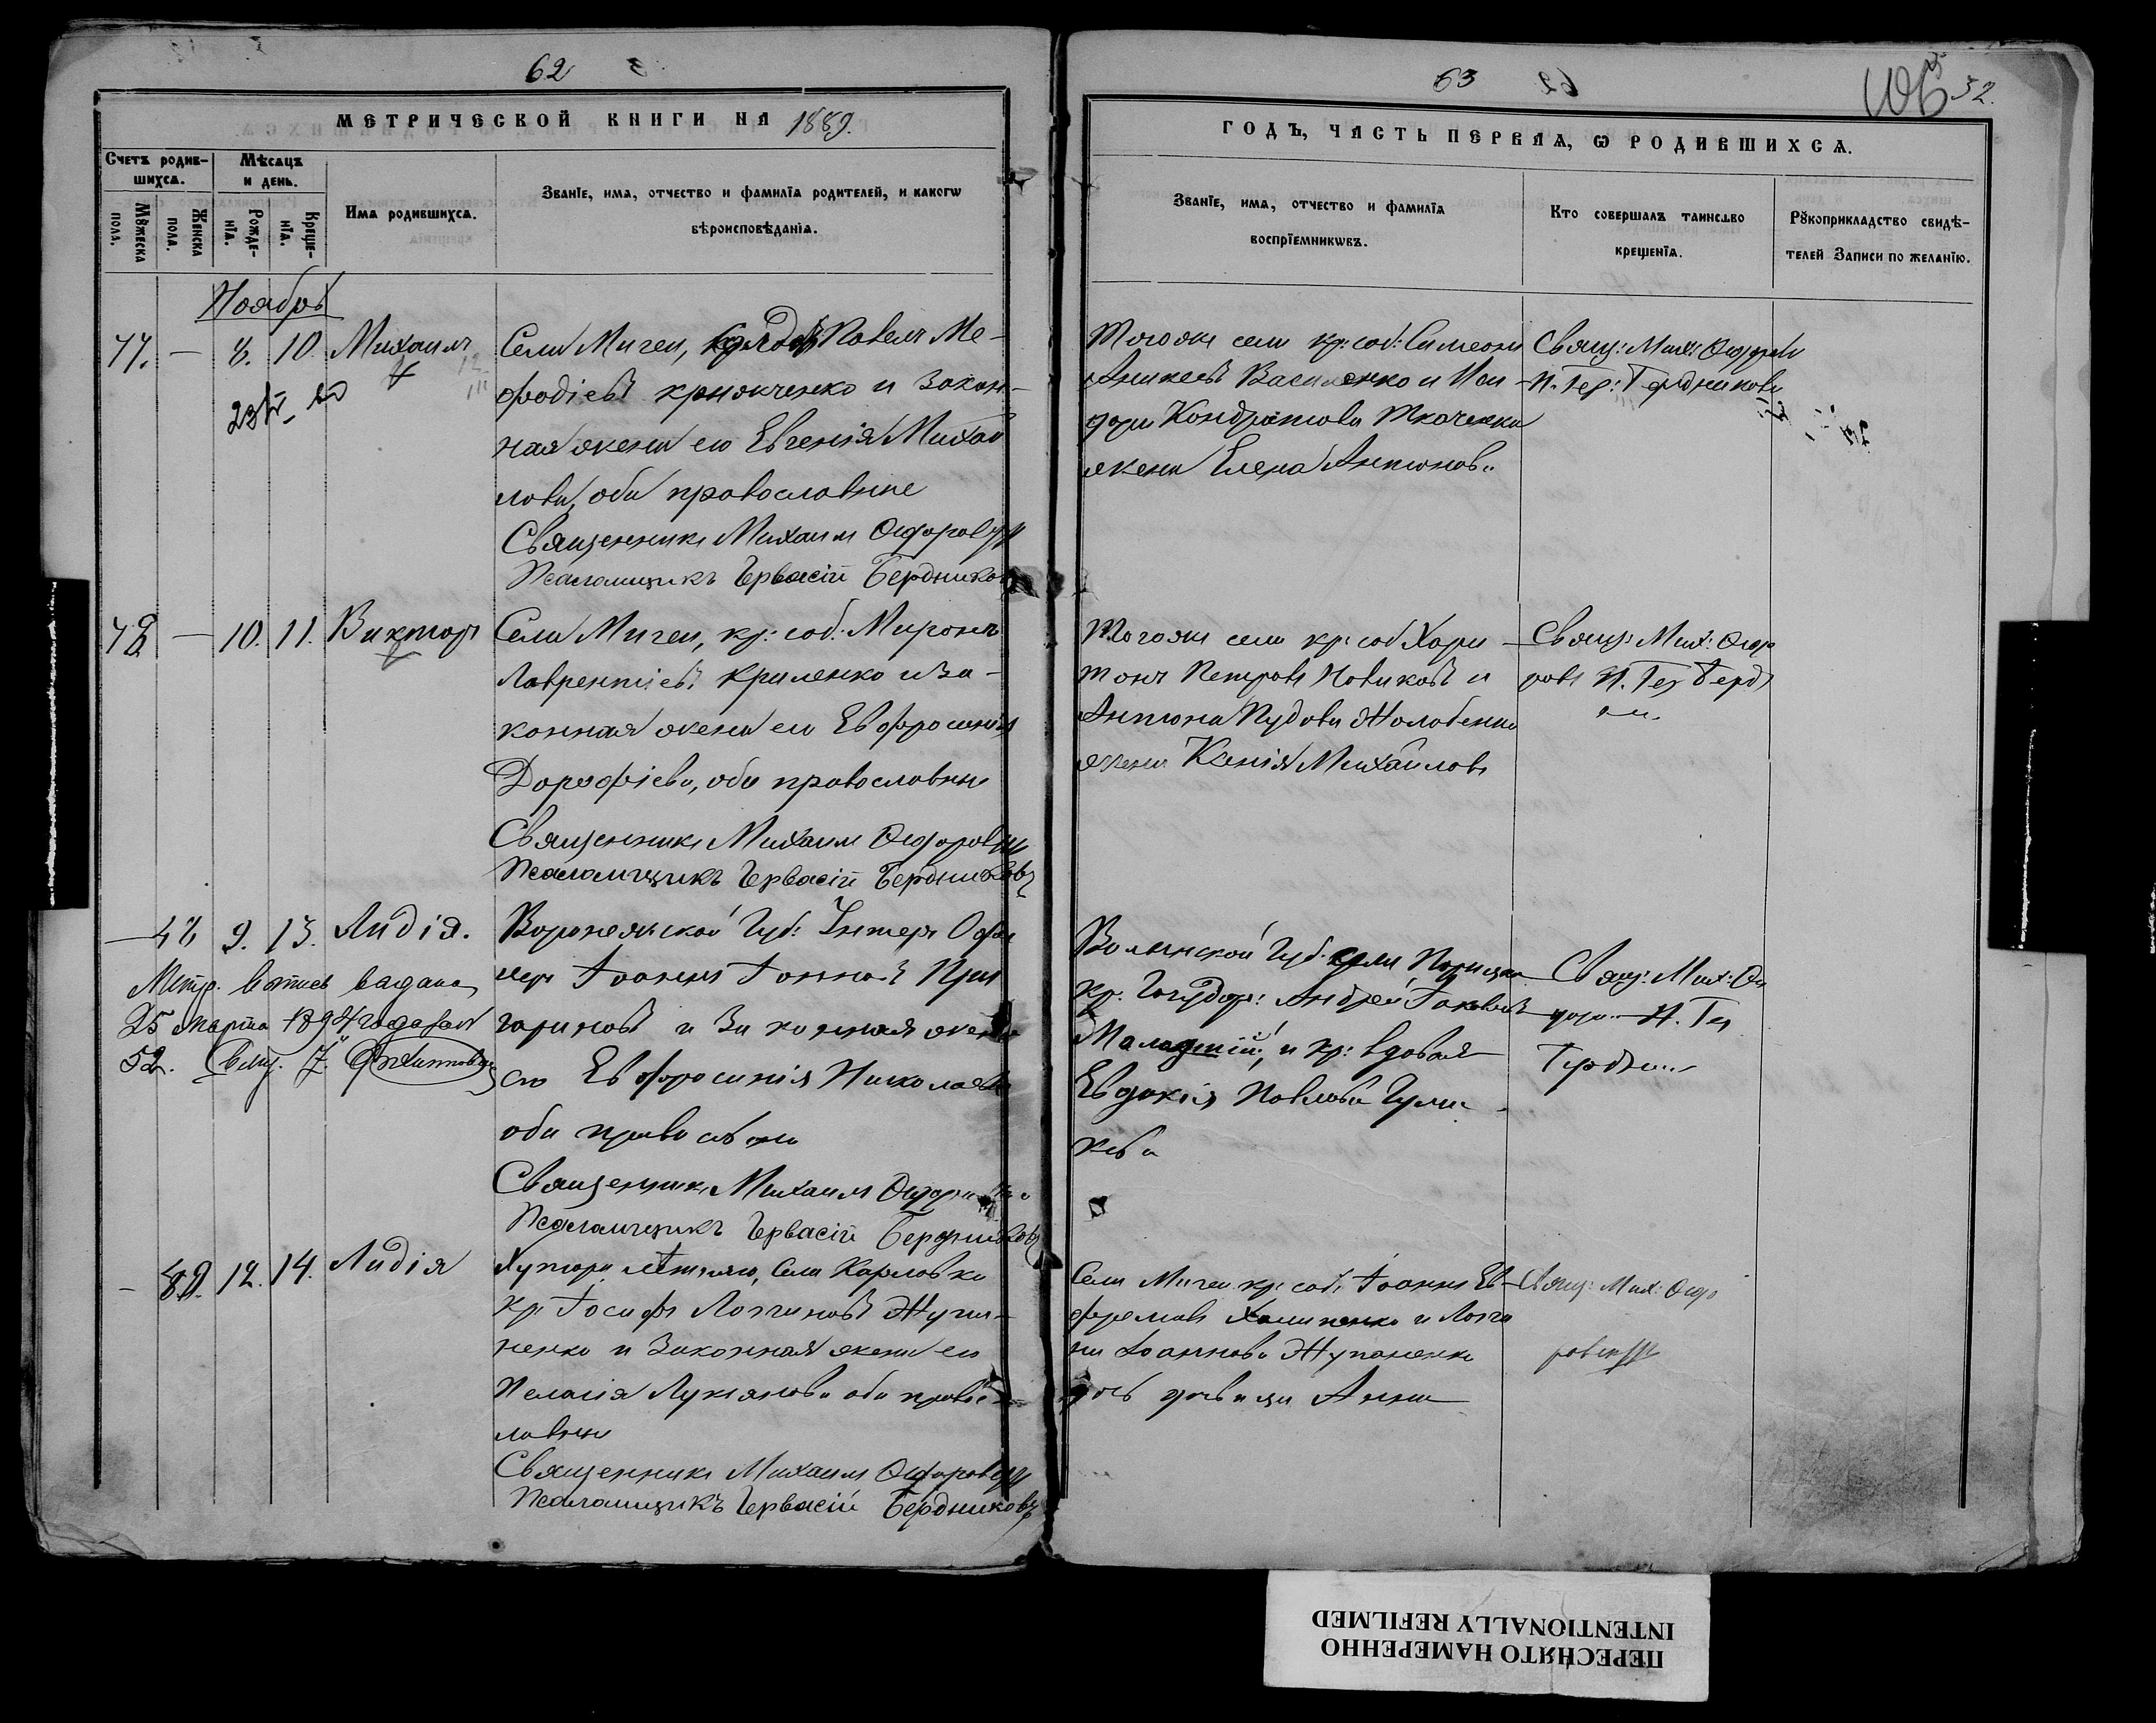 62
МЕТРИЧЕСКОЙ КНИГИ НА 1889.
Счетъ родив-
шихсѧ.
Мѣсѧцъ
и день.
Мꙋжеска
полa.
Женска
пола.
Рожде-
нїѧ.
Креще-
нїѧ.
Имѧ родившихсѧ.
Званїе, имѧ, отчество и фамилїѧ родителей, и какогѡ
вѣроисповѣданїѧ.
Ноябрь
77. — 8. 10. Михаилъ
Села Мигеи, Павелъ Ме-
фодіевъ крючченко и Закон-
ная жена его Евгенія Михай
лова, оба православные
Священникъ Михаилъ Ѳедоров
Псаломщикъ Гервасій Бердников
78 — 10. 11. Викторъ
Села Мигеи, кр: соб: Миронъ
Лаврентіевъ Криленко и За-
конная жена его Евфросинія
Дорофіева, оба православны
Священникъ Михаилъ Ѳедоров
Псаломщикъ Гервасій Бердниковъ
— 9. 13. Лидія.
Метр. выпись выдана
25 марта 1894 года за №
52. Свящ.
Воронежской Губ: Унтеръ Офи
церъ Іоаннъ
и Законная жена
его Евфросинія Николаева
оба правосл
Священникъ Михаилъ
Псаломщикъ Гервасій Бердниковъ
— 12. 14. Лидія
Хутора Села Карловки
кр: Іосифъ Логгиновъ Жупа-
ненко и Законная жена его
Пелагія Лукіянова оба правос-
лавны
Священникъ Михаилъ Ѳедоров
Псаломщикъ Гервасій Бердниковъ
63
32.
ГОДЪ, ЧАСТЬ ПЕРВАѦ, Ѡ РОДИВШИХСѦ.
Званїе, имѧ, отчество и фамилїѧ
воспрїемникѡвъ.
Кто совершалъ таинство
крещенїѧ.
Рꙋкоприкладство свидѣ-
телей Записи по желанїю.
Тогоже села кр: соб: Симеонъ
Аникеевъ Василенко и Иси-
дора Кондратова Ткаченка
жена Елена Антонов.
Свящ: Мих: Ѳедоров
П. Гер: Бердников
Тогоже села кр: соб Хари-
тонъ Петровъ Новиковъ и
Антона Пудова Жолобенка
жена Ксенія Михайлов
Свящ: Мих: Ѳедо
ровъ П. Гер Берд
Волынской Губ. села
кр. Государ: Андрей Іаковлевъ
и кр: вдова
Евдокія Павлова
Свящ: Мих: Ѳе
П. Гер
Села Мигеи кр: соб: Іоаннъ Ев-
фремовъ и Логги
на Іоаннова Жупаненка
дочь девица Анна
Свящ: Мих: Ѳедо
ПЕРЕСНЯТО НАМЕРЕННО
INTENTIONALLY REFILMED